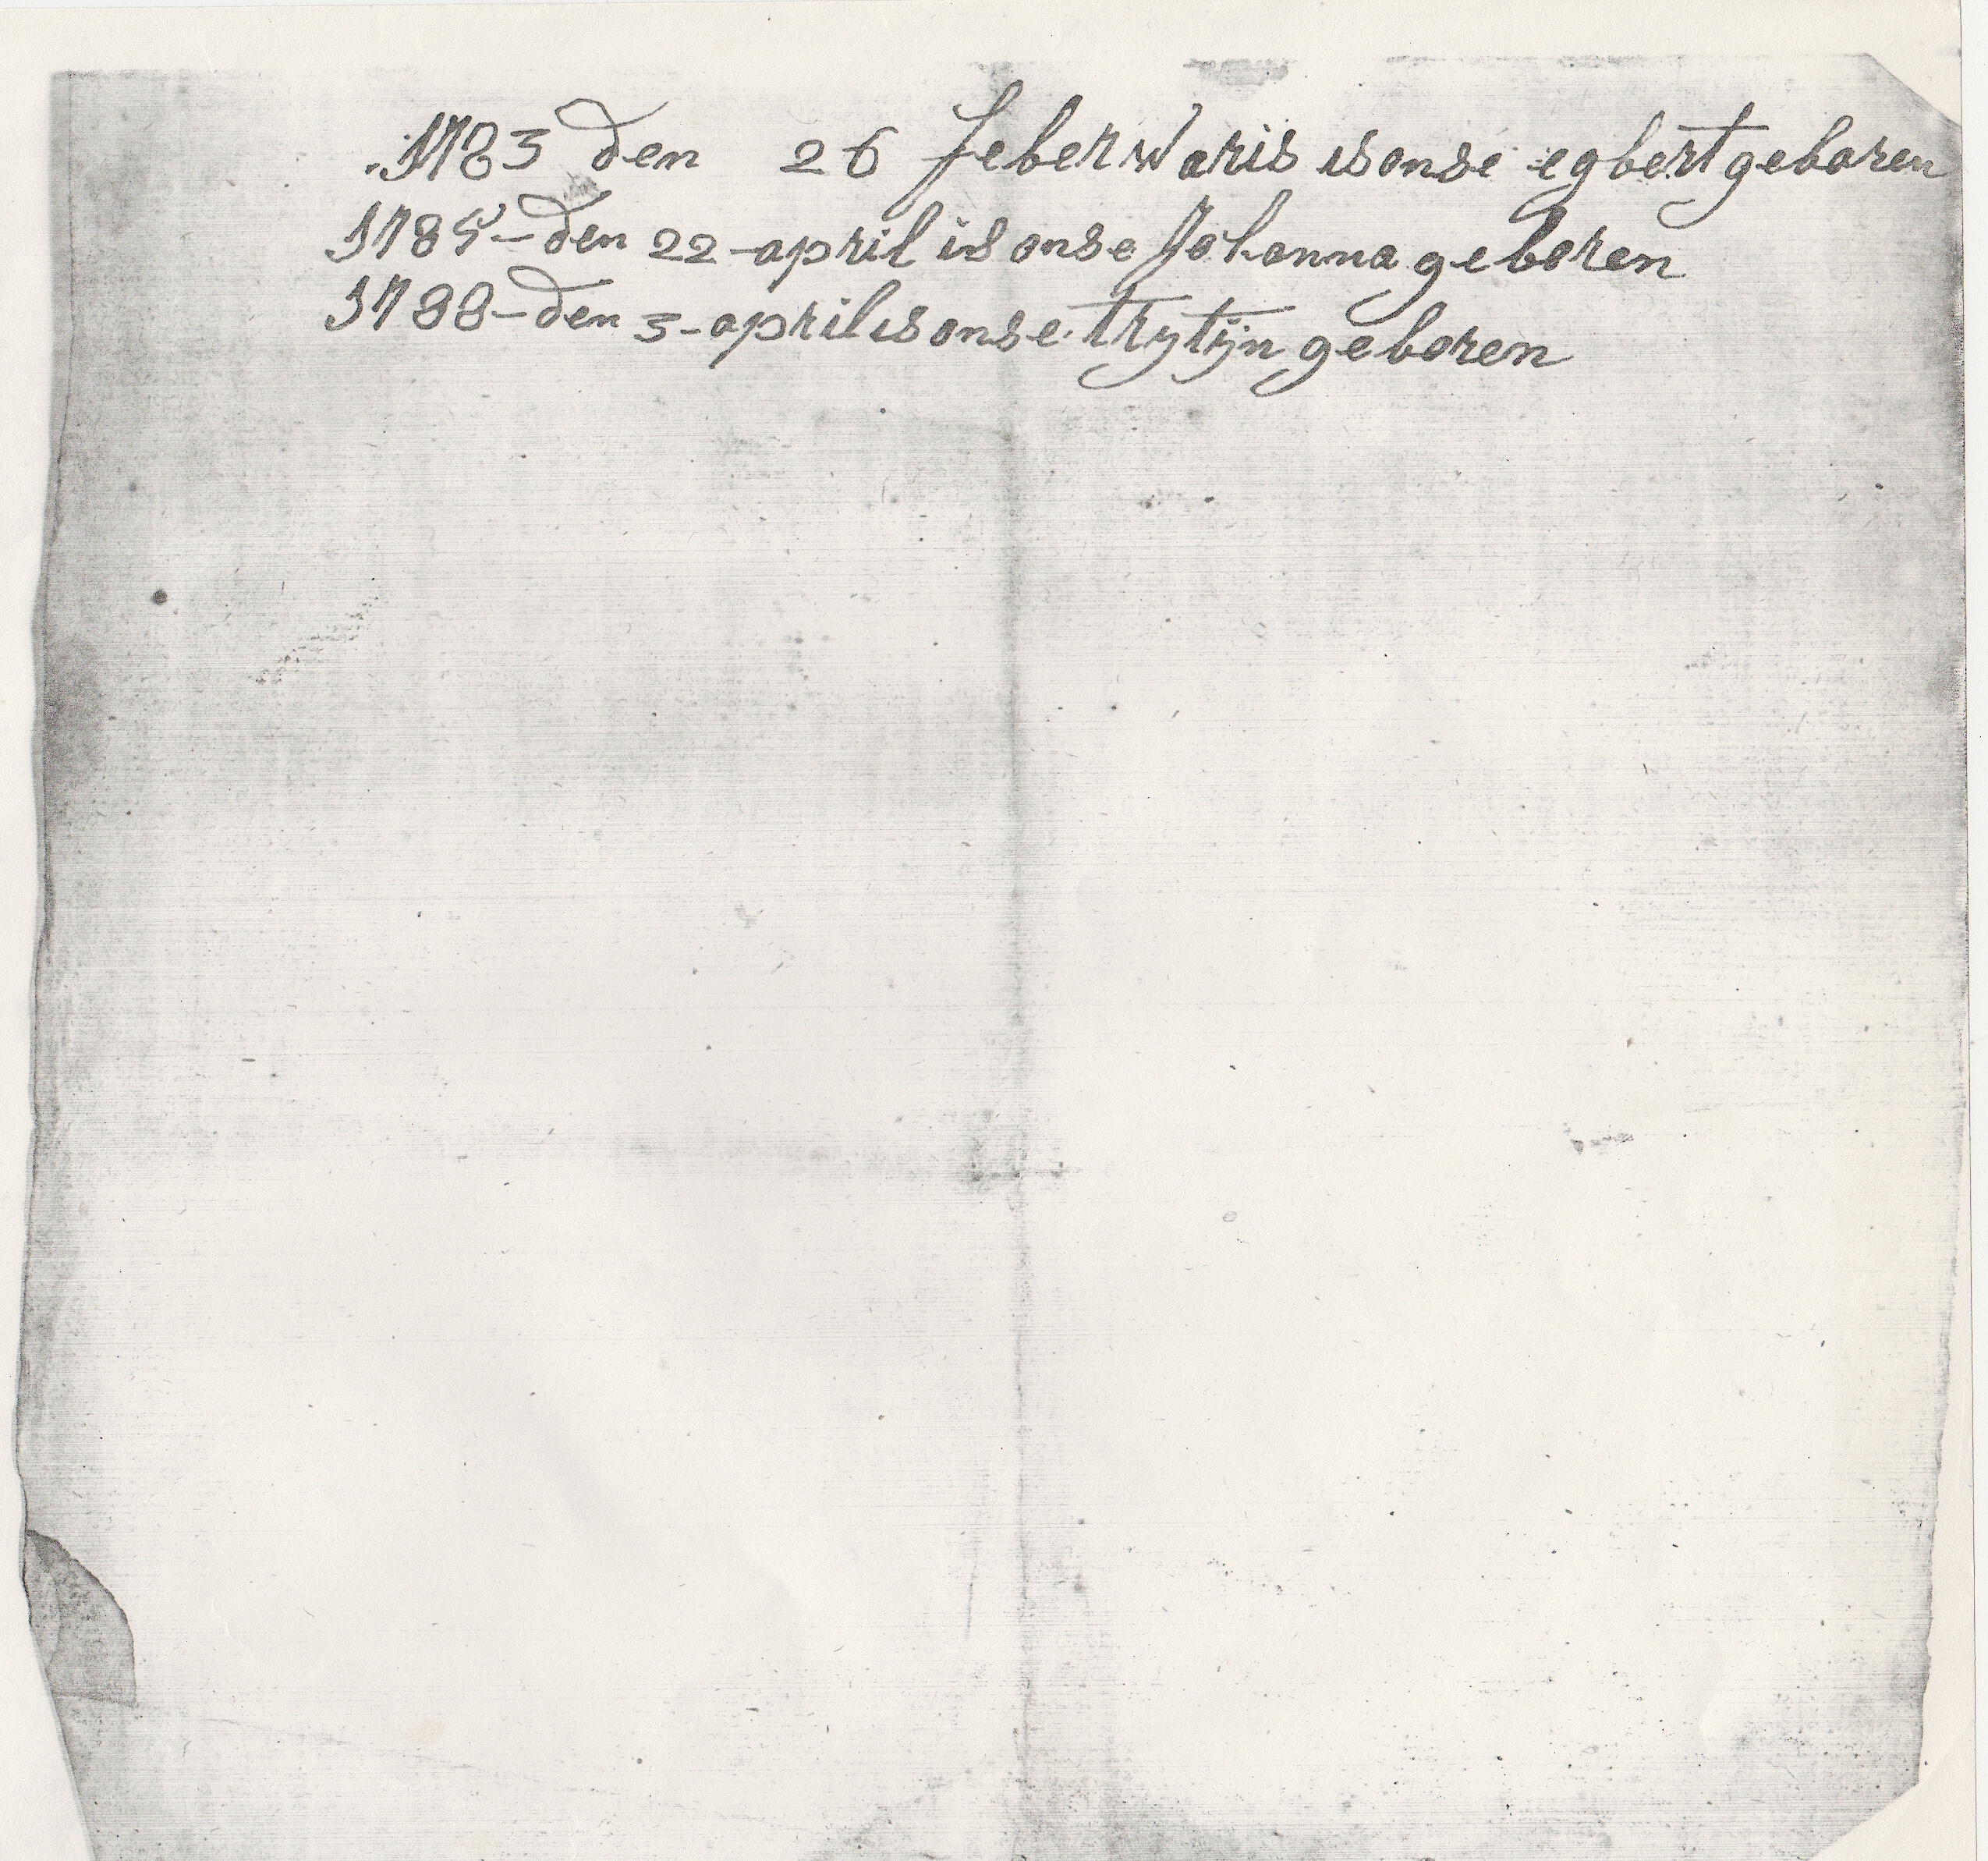 1783 den 26 feberwaris is onse egbert geboren
1785 - den 22 - april is onse Johanna geboren
1788 - den 3 - april is onse trytijn geboren